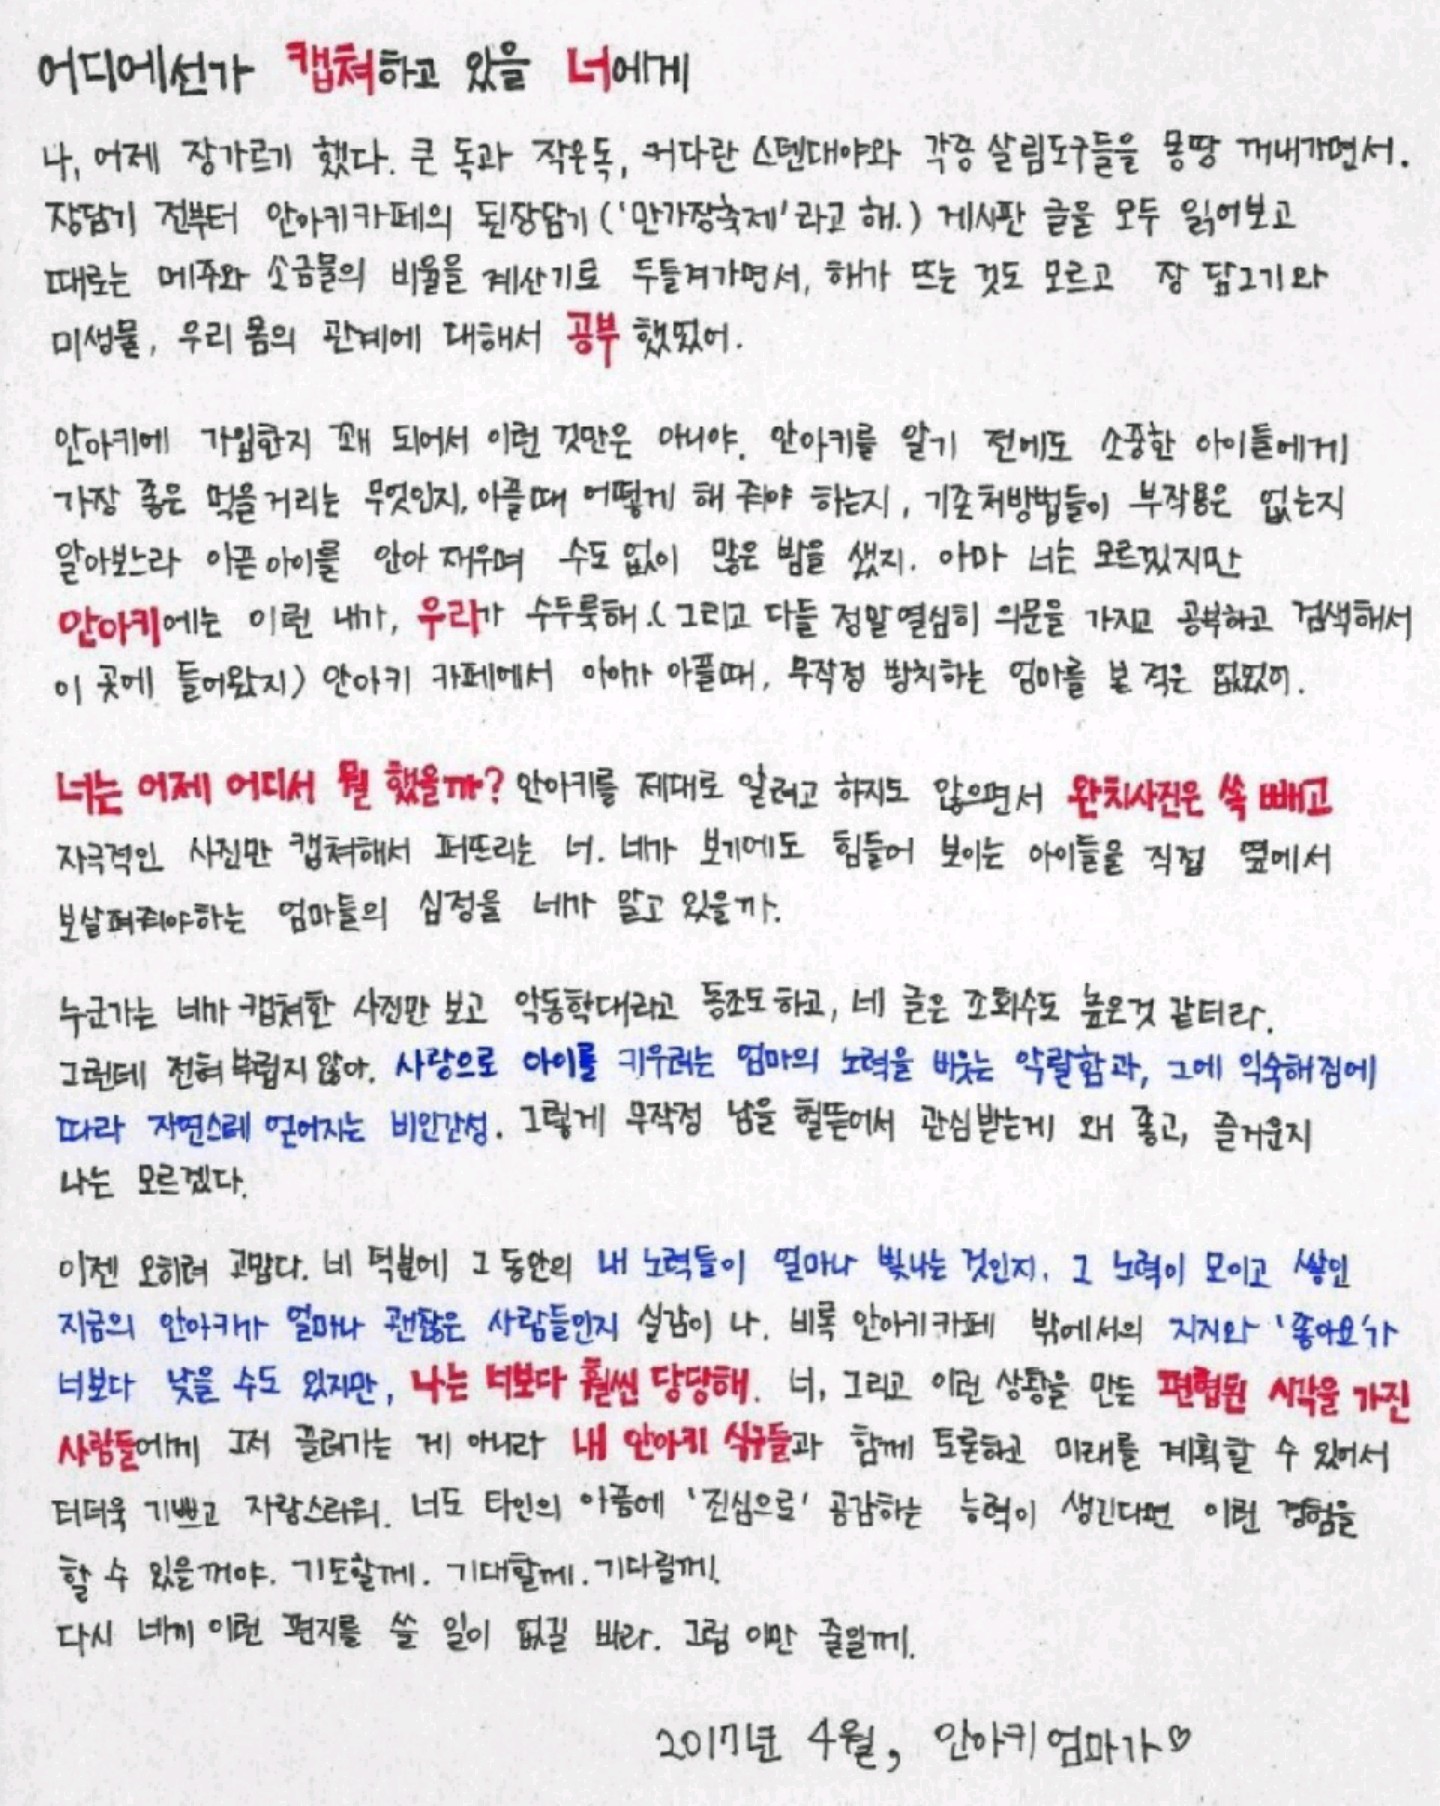 어디에선가 캡쳐하고 있을 너에게
나, 어제 장가르기 했다. 큰 독과 작은독, 커다란 스텐대야와 각종 살림도구들을 몽땅 꺼내가면서.
장담기 전부터 안아키카페의 된장담기('만가장축제'라고 해.) 게시판 글을 모두 읽어보고
때로는 메주와 소금물의 비율을 계산기로 두들겨가면서, 해가 뜨는 것도 모르고 장 담그기와
미생물, 우리 몸의 관계에 대해서 공부 했었어.
안아키에 가입한지 꽤 되어서 이런 것만은 아니야. 안아키를 알기 전에도 소중한 아이들에게
가장 좋은 먹을거리는 무엇인지, 아플때 어떻게 해 줘야 하는지, 기존처방법들이 부작용은 없는지
알아보느라 아픈 아이를 안아 재우며 수도 없이 많은 밤을 샜지. 아마 너는 모르겠지만
안아키에는 이런 내가, 우리가 수두룩해.(그리고 다들 정말 열심히 의문을 가지고 공부하고 검색해서
이 곳에 들어왔지) 안아키 카페에서 아이가 아플때, 무작정 방치하는 엄마를 본 적은 없었어.
너는 어제 어디서 뭘 했을까? 안아키를 제대로 알려고 하지도 않으면서 완치사진은 쏙 빼고
자극적인 사진만 캡쳐해서 퍼뜨리는 너. 네가 보기에도 힘들어 보이는 아이들을 직접 옆에서
보살펴줘야하는 엄마들의 심정을 네가 알고 있을까.
누군가는 네가 캡쳐한 사진만 보고 아동학대라고 동조도 하고, 네 글은 조회수도 높은것 같더라.
그런데 전혀 부럽지 않아. 사랑으로 아이를 키우려는 엄마의 노력을 비웃는 악랄함과, 그에 익숙해짐에
따라 자연스레 얻어지는 비인간성. 그렇게 무작정 남을 헐뜯어서 관심받는게 왜 좋고, 즐거운지
나는 모르겠다.
이젠 오히려 고맙다. 네 덕분에 그 동안의 내 노력들이 얼마나 빛나는 것인지, 그 노력이 모이고 쌓인
지금의 안아키가 얼마나 괜찮은 사람들인지 실감이 나. 비록 안아키카페 밖에서의 지지와 '좋아요'가
너보다 낮을 수도 있지만, 나는 너보다 훨씬 당당해. 너, 그리고 이런 상황을 만든 편협된 시각을 가진
사람들에게 그저 끌려가는 게 아니라 내 안아키 식구들과 함께 토론하고 미래를 계획할 수 있어서
더더욱 기쁘고 자랑스러워. 너도 타인의 아픔에 '진심으로' 공감하는 능력이 생긴다면 이런 경험을
할 수 있을꺼야. 기도할께. 기대할께. 기다릴께.
다시 네게 이런 편지를 쓸 일이 없길 바라. 그럼 이만 줄일께.
2017년 4월, 안아키 엄마가♡